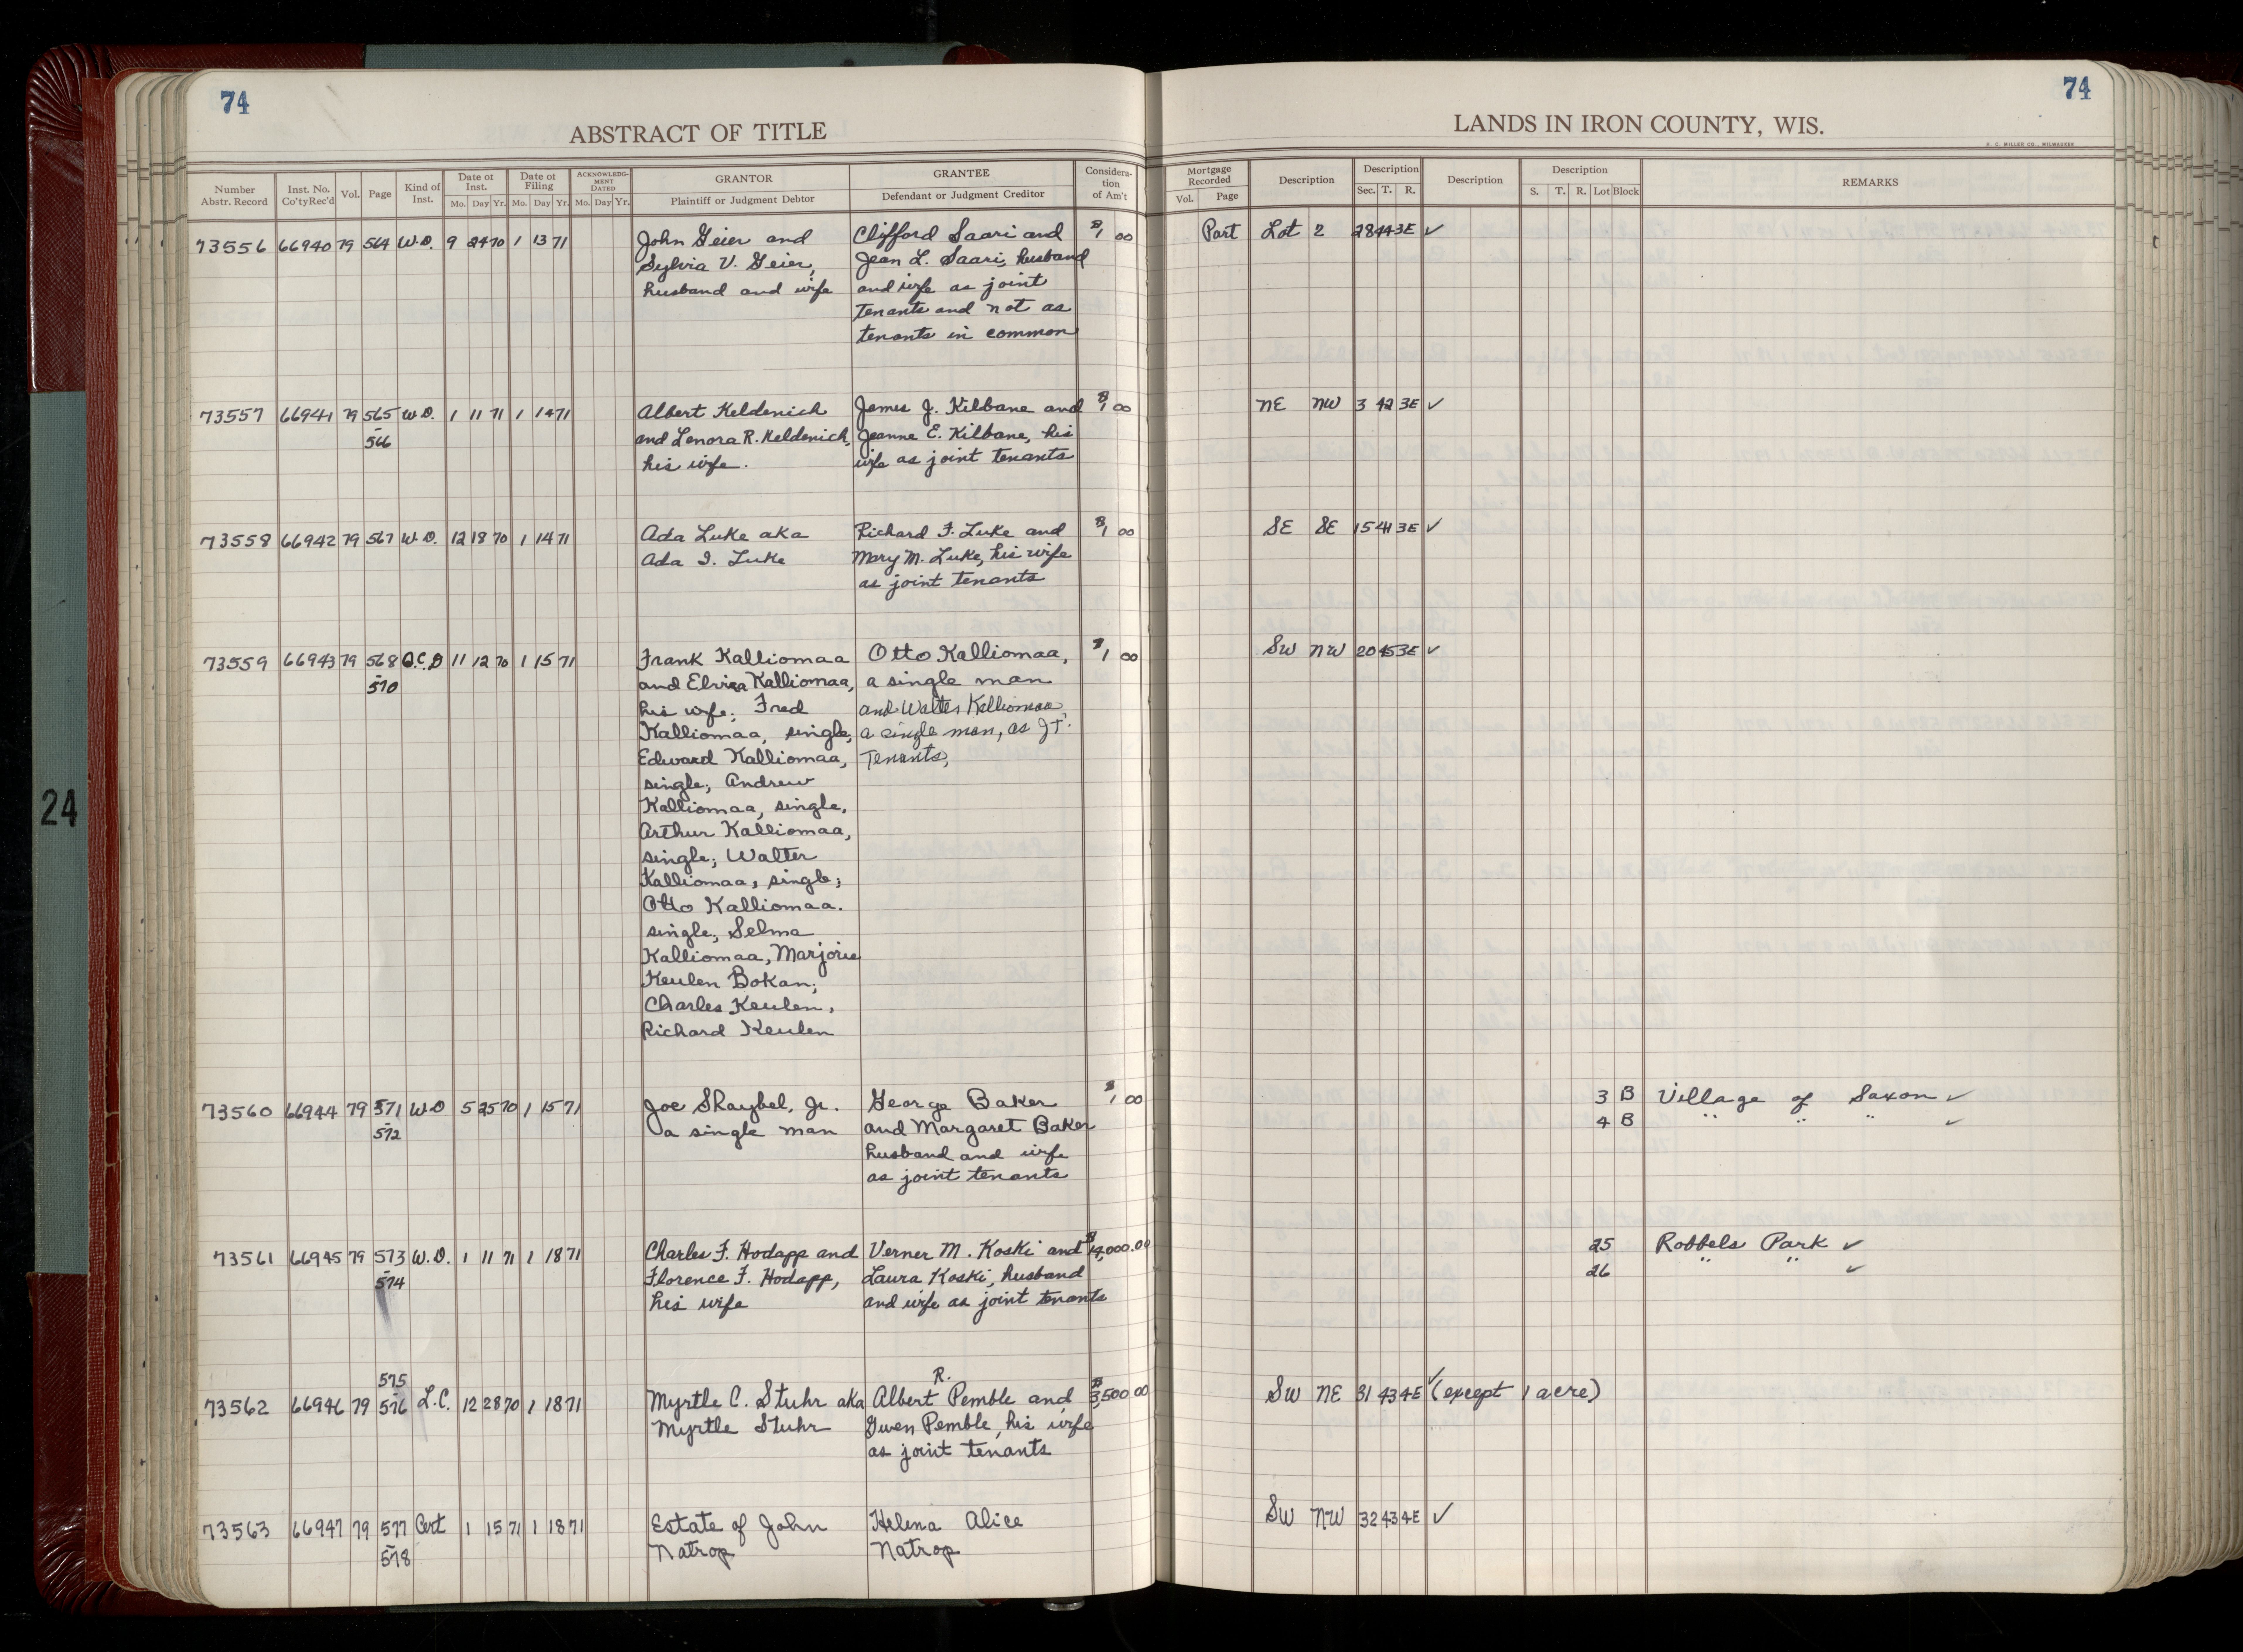 74
74
ABSTRACT OF TITLE
LANDS IN IRON COUNTY, WIS.
H. C. MILLER CO., MILWAUKEE
Number Abstr. Record | Inst. No. Co'ty Rec'd | Vol. | Page | Kind of Inst. | Date of Inst. Mo. Day Yr. | Date of Filing Mo. Day Yr. | ACKNOWLEDGMENT DATED Mo. Day Yr. | GRANTOR Plaintiff or Judgment Debtor | GRANTEE Defendant or Judgment Creditor | Consideration of Am't | Mortgage Recorded Vol. Page | Description | Description Sec. T. R. | Description | Description S. T. R. Lot Block | REMARKS
73556 66940 79 564 W.D. 9 24 70 1 13 71 John Geier and Clifford Saari and $1 00 Part Lot 2 28 44 3E ✓
Sylvia V. Geier, Jean L. Saari, husband
husband and wife and wife as joint
Tenants and not as
tenants in common
73557 66941 79 565 W.D. 1 11 71 1 14 71 Albert Keldenich James J. Kilbane and $1 00 NE NW 3 42 3E ✓
- 566 and Lenora R. Keldenich, Jeanne E. Kilbane, his
his wife. wife as joint tenants
73558 66942 79 567 W.D. 12 18 70 1 14 71 Ada Luke aka Richard F. Luke and $1 00 SE SE 15 41 3E ✓
Ada I. Luke Mary M. Luke, his wife
as joint tenants
73559 66943 79 568 Q.C.D 11 12 70 1 15 71 Frank Kalliomaa Otto Kalliomaa, $1 00 SW NW 20 45 3E ✓
- 570 and Elvira Kalliomaa, a single man
his wife; Fred and Walter Kalliomaa,
Kalliomaa, single; a single man, as JT.
Edward Kalliomaa, Tenants,
single; Andrew
Kalliomaa, single,
Arthur Kalliomaa,
single; Walter
Kalliomaa, single;
Otto Kalliomaa.
single; Selma
Kalliomaa, Marjorie
Keulen Bokan;
Charles Keulen,
Richard Keulen
73560 66944 79 571 W.D 5 25 70 1 15 71 Joe Shaybel, Jr. George Baker $1 00 3 B Village of Saxon ✓
- 572 a single man and Margaret Baker 4 B " " " ✓
husband and wife
as joint tenants
73561 66945 79 573 W.D. 1 11 71 1 18 71 Charles F. Hodapp and Verner M. Koski and $14,000.00 25 Robbels Park ✓
- 574 Florence F. Hodapp, Laura Koski, husband 26 " " ✓
his wife and wife as joint tenants
575 R.
73562 66946 79 576 L.C. 12 28 70 1 18 71 Myrtle C. Stuhr aka Albert Pemble and $3,500 00 SW NE 31 43 4E ✓ (except 1 acre)
Myrtle Stuhr Gwen Pemble, his wife
as joint tenants
73563 66947 79 577 Cert 1 15 71 1 18 71 Estate of John Helena Alice SW NW 32 43 4E ✓
- 578 Natrop Natrop
24